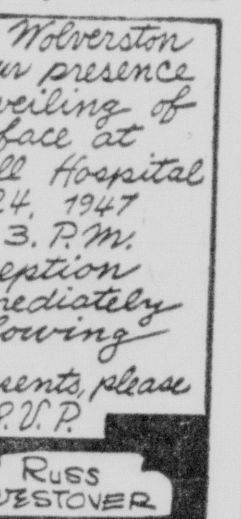 Wolverston
ur presence
veiling of
face at
ll Hospital
24, 1947
3. P.M.
eption
mediately
lowing
sents, please
P.V.P.
RUSS
WESTOVER